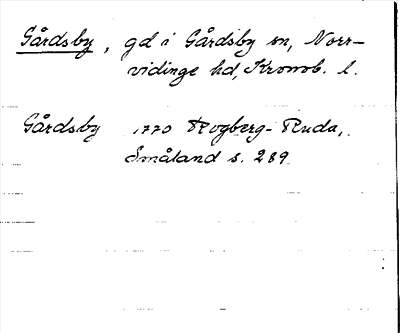 Gårdsby, gd i Gårdsby sn, Norr-
vidinge hd, Kronob. l.
Gårdsby 1770 Rogberg-Ruda,
Småland s. 289